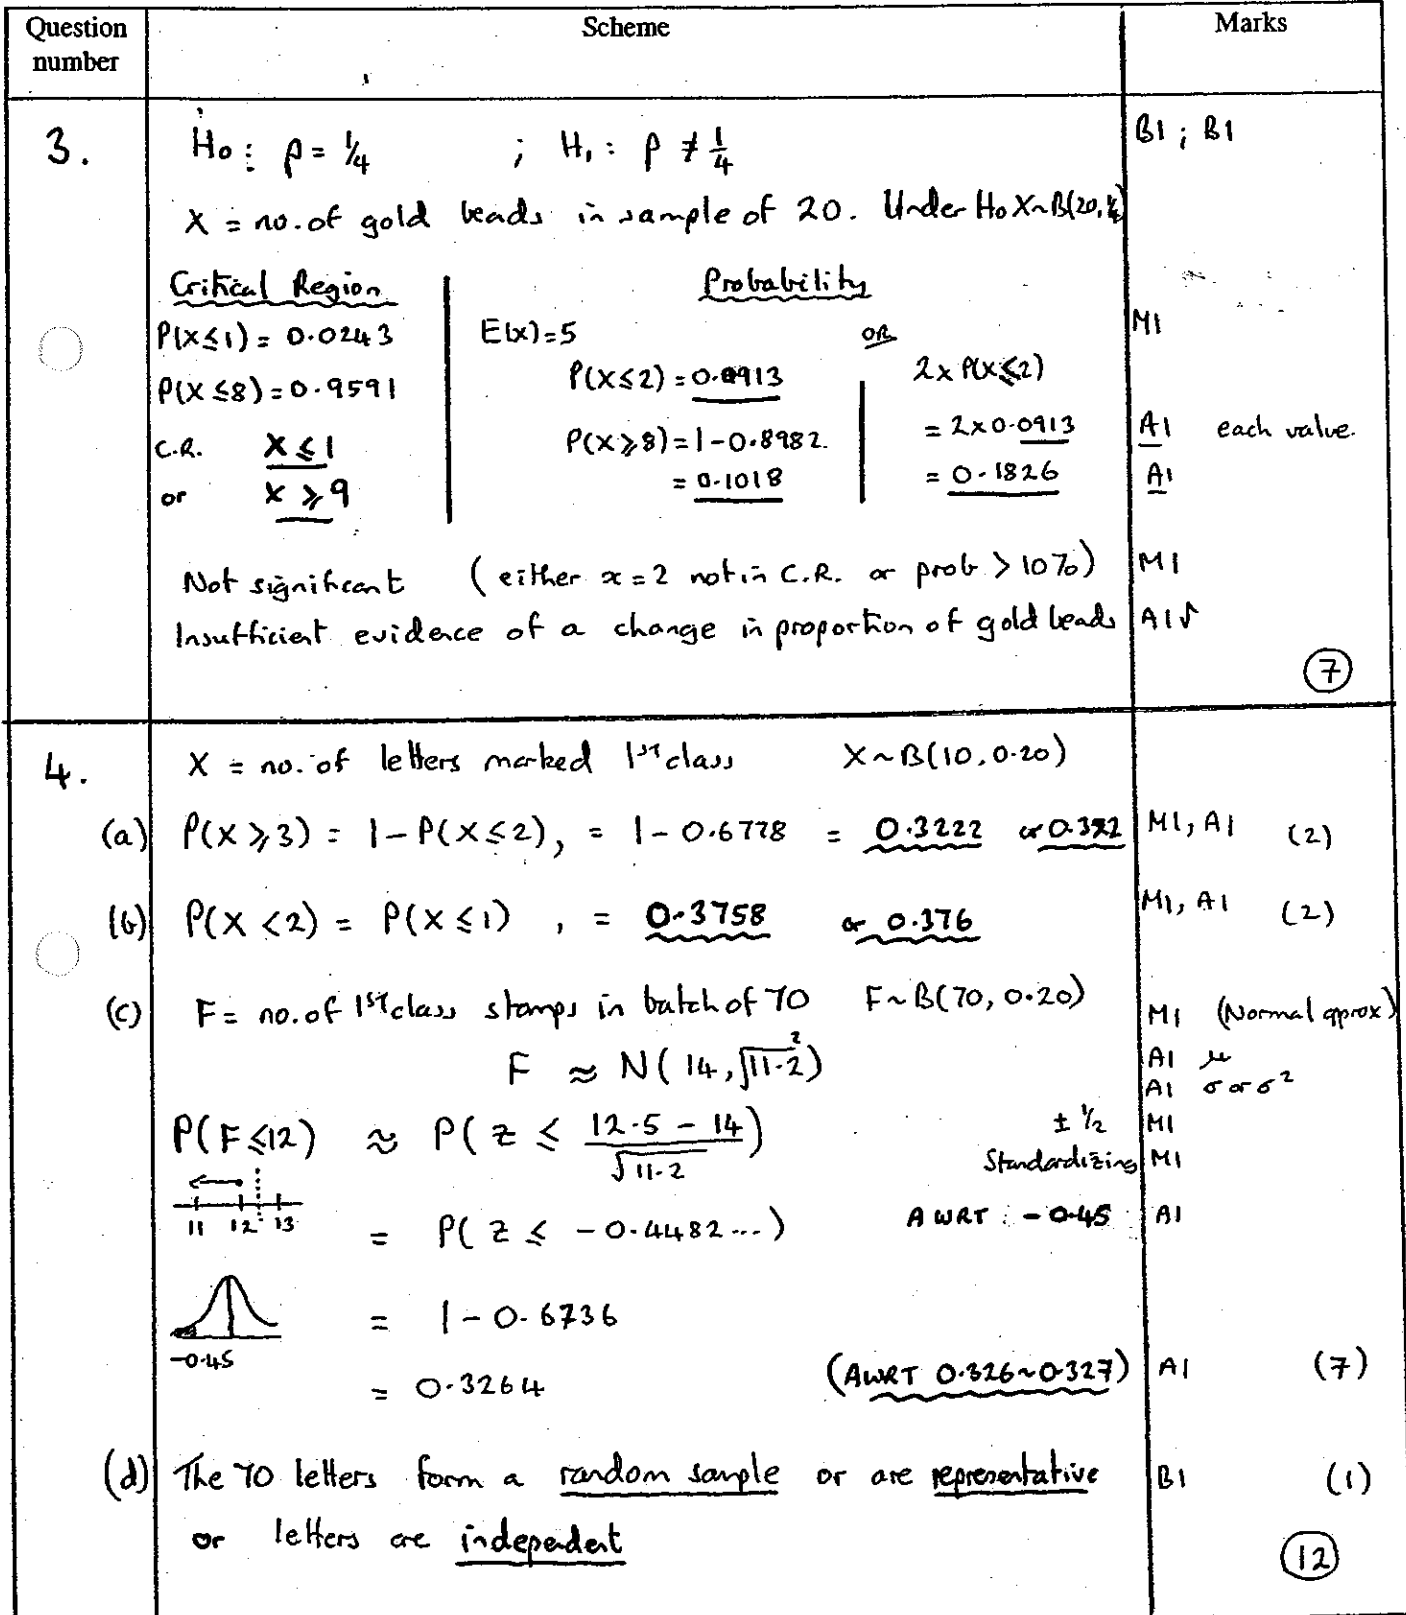 Question number Scheme Marks
3. H₀: p = 1/4 ; H₁: p ≠ 1/4 B1 ; B1
X = no. of gold beads in sample of 20. Under H₀ X~B(20, ¼)
Critical Region Probability
P(X≤1) = 0.0243 E(x)=5 OR M1
P(X≤8) = 0.9591 P(X≤2) = 0.0913 2 x P(X≤2)
C.R. X ≤ 1 P(X≥8) = 1-0.8982. = 2x0.0913 A1 each value.
or X ≥ 9 = 0.1018 = 0.1826 A1
Not significant (either x=2 not in C.R. or prob > 10%) M1
Insufficient evidence of a change in proportion of gold beads A1√
7
4. X = no. of letters marked 1st class X~B(10, 0.20)
(a) P(X≥3) = 1-P(X≤2), = 1-0.6778 = 0.3222 or 0.322 M1, A1 (2)
(b) P(X<2) = P(X≤1) , = 0.3758 or 0.376 M1, A1 (2)
(c) F = no. of 1st class stamps in batch of 70 F~B(70, 0.20) M1 (Normal approx)
F ≈ N(14, √11.2²) A1 μ
A1 σ or σ²
P(F≤12) ≈ P(z ≤ (12.5 - 14)/√11.2) ± ½ M1
Standardizing M1
11 12 13 = P(z ≤ -0.4482...) AWRT : -0.45 A1
= 1-0.6736
-0.45
= 0.3264 (AWRT 0.326~0.327) A1 (7)
(d) The 70 letters form a random sample or are representative B1 (1)
or letters are independent
12